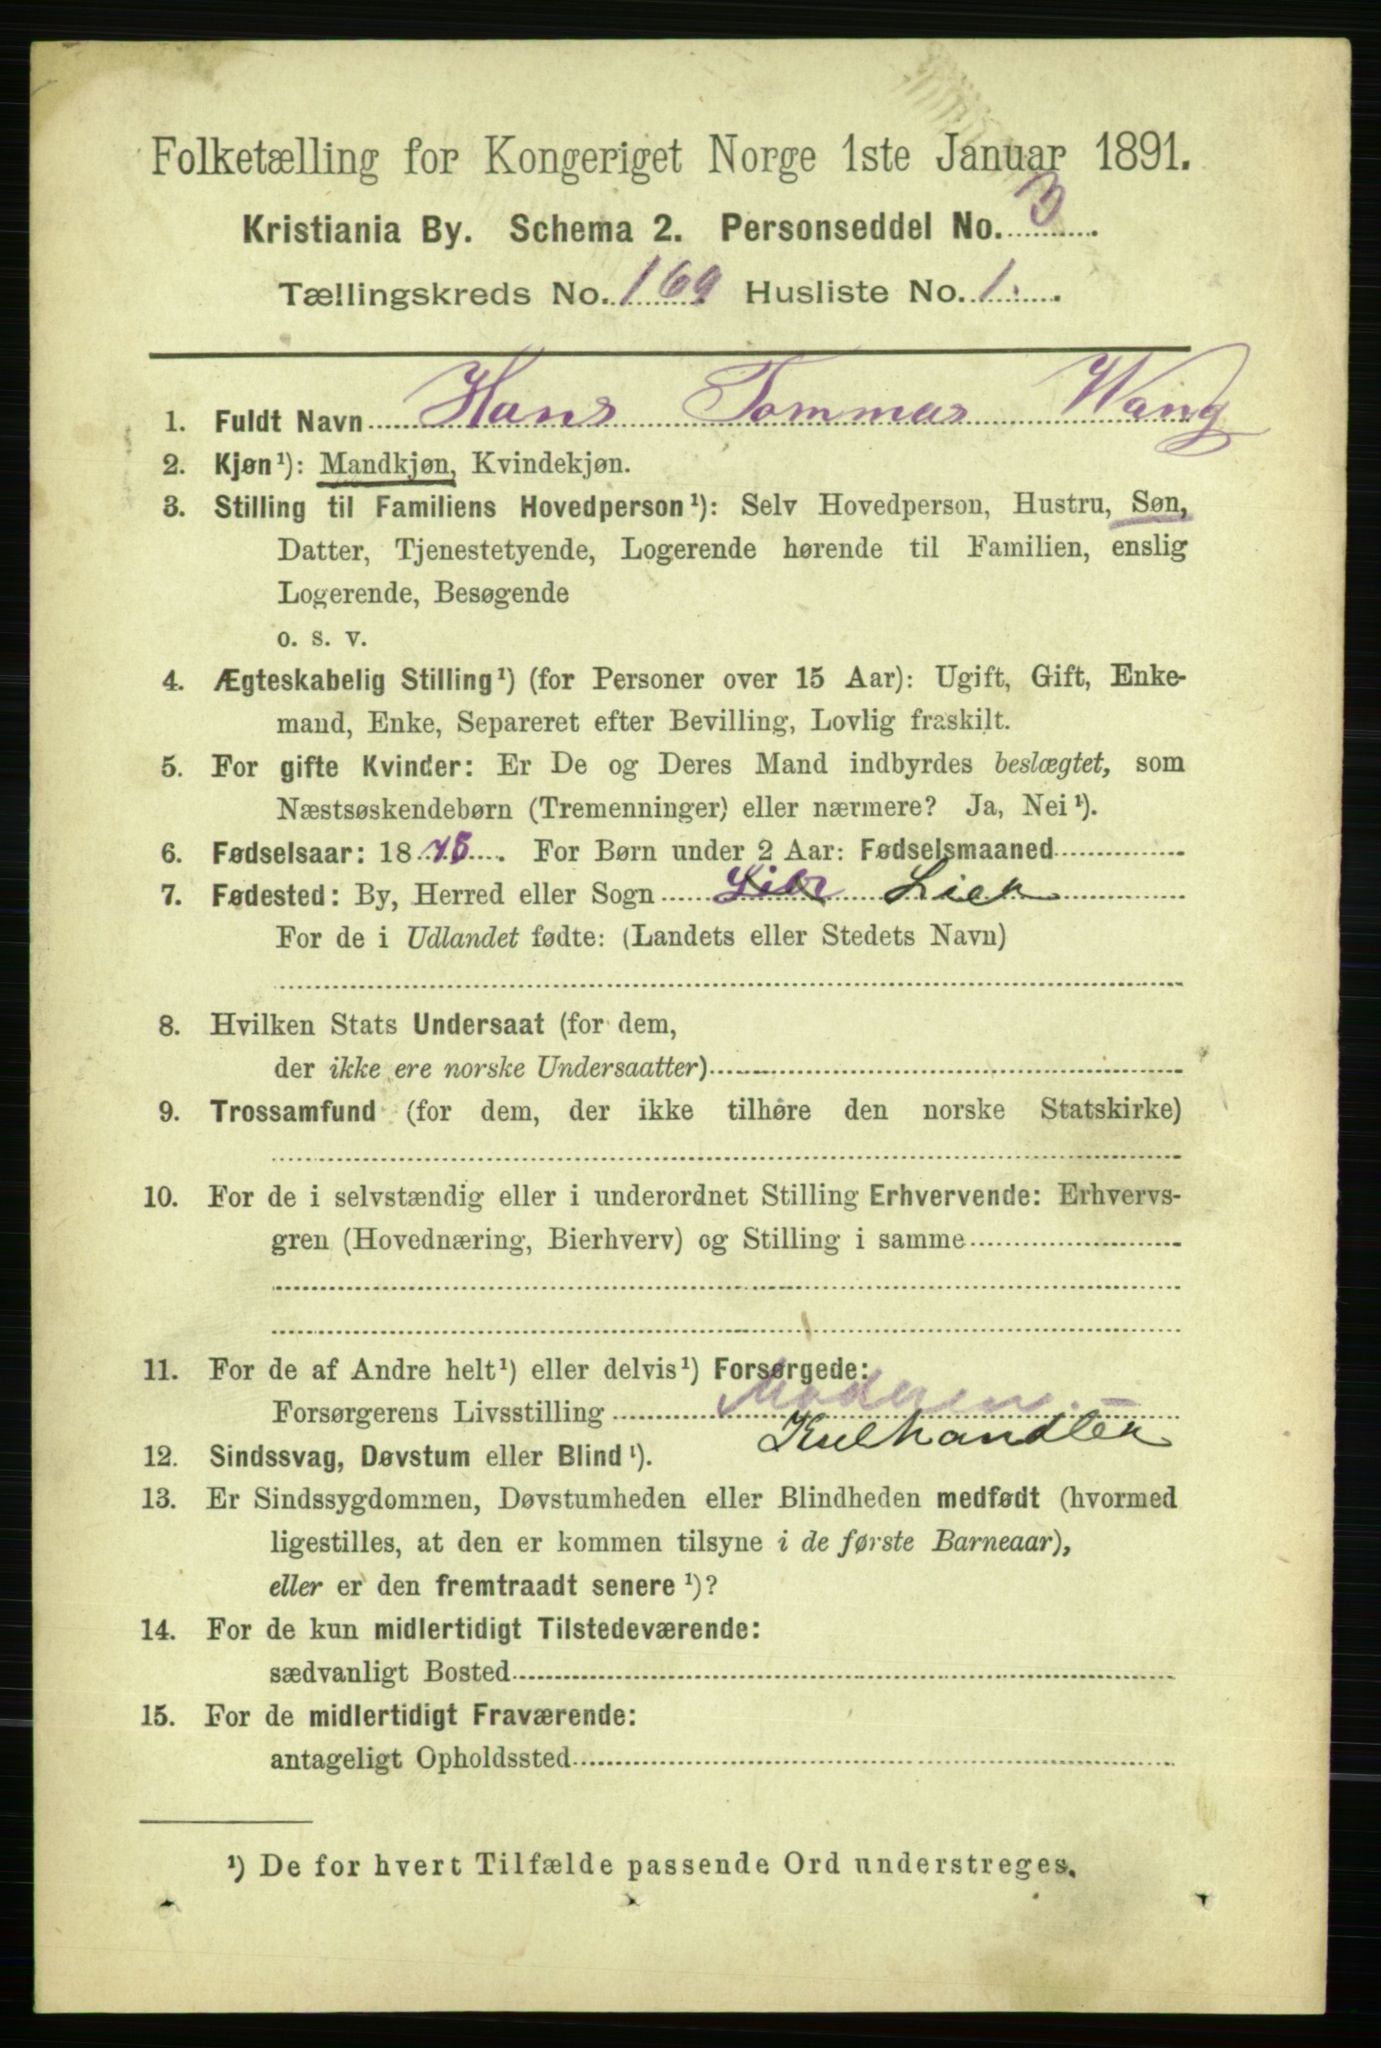 Folketælling for Kongeriget Norge 1ste Januar 1891.
Kristiania By. Schema 2. Personseddel No. 3
Tællingskreds No. 169 Husliste No. 1.
1. Fuldt Navn Hans Tommas Wang
2. Kjøn¹): Mandkjøn, Kvindekjøn.
3. Stilling til Familiens Hovedperson¹): Selv Hovedperson, Hustru, Søn,
Datter, Tjenestetyende, Logerende hørende til Familien, enslig
Logerende, Besøgende
o. s. v.
4. Ægteskabelig Stilling¹) (for Personer over 15 Aar): Ugift, Gift, Enke-
mand, Enke, Separeret efter Bevilling, Lovlig fraskilt.
5. For gifte Kvinder: Er De og Deres Mand indbyrdes beslægtet, som
Næstsøskendebørn (Tremenninger) eller nærmere? Ja, Nei¹).
6. Fødselsaar: 1875. For Børn under 2 Aar: Fødselsmaaned
7. Fødested: By, Herred eller Sogn Lier Lier
For de i Udlandet fødte: (Landets eller Stedets Navn)
8. Hvilken Stats Undersaat (for dem,
der ikke ere norske Undersaatter)
9. Trossamfund (for dem, der ikke tilhøre den norske Statskirke)
10. For de i selvstændig eller i underordnet Stilling Erhvervende: Erhvervs-
gren (Hovednæring, Bierhverv) og Stilling i samme
11. For de af Andre helt¹) eller delvis¹) Forsørgede:
Forsørgerens Livsstilling Moderen. —
Kulhandler
12. Sindssvag, Døvstum eller Blind¹).
13. Er Sindssygdommen, Døvstumheden eller Blindheden medfødt (hvormed
ligestilles, at den er kommen tilsyne i de første Barneaar),
eller er den fremtraadt senere¹)?
14. For de kun midlertidigt Tilstedeværende:
sædvanligt Bosted
15. For de midlertidigt Fraværende:
antageligt Opholdssted
¹) De for hvert Tilfælde passende Ord understreges.